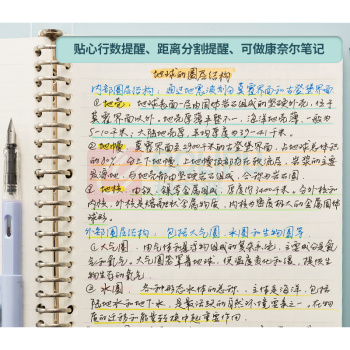 贴心行数提醒、距离分割提醒、可做康奈尔笔记
地球的圈层结构
内部圈层结构：通过地震波划分莫霍界面和古登堡界面
①地壳：地球表面一层由固体岩石组成的坚硬外壳，位于
莫霍界面以外，地壳厚薄不一，海洋地壳薄，一般为
5-10千米；大陆地壳厚，平均厚度为39-41千米。
②地幔：莫霍界面至2900千米的古登堡界面，占地球总体积
的80%，分上下地幔，上地幔顶部为软流层，岩浆的主要
发源地，与地壳都由坚硬岩石组成，合称为岩石圈。
③地核：由铁、镍等金属组成，厚度约3400千米，分外核和
内核，外核是熔融状金属物质，内核为密度极大的金属固体
球形。
外部圈层结构：包括大气圈、水圈和生物圈等
①大气圈：由气体和悬浮物组成的复杂系统，主要成分是氮
气和氧气。大气圈笼罩着地球，使温度变化和缓，提供生
物生存的氧气。
②水圈：各种形态水体的总称，主体是海洋，包括
陆地水和地下水，是最活跃的自然环境要素之一，在物
质迁移和能量转换中起重要作用。